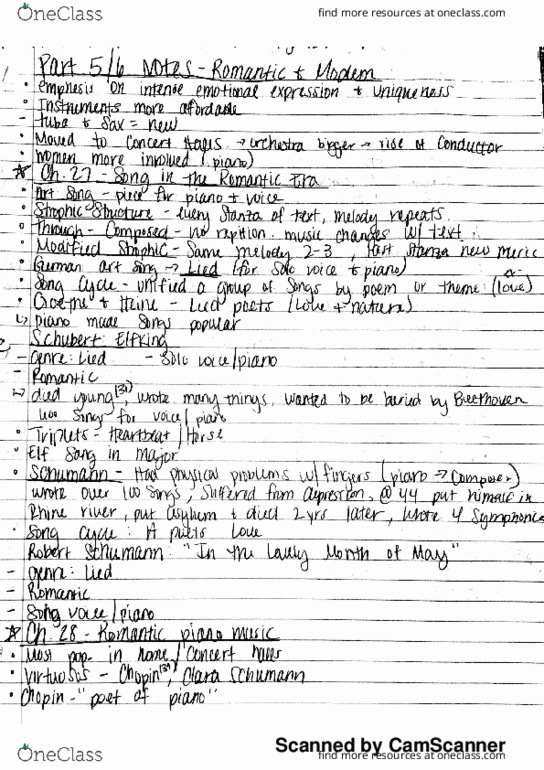 OneClass
find more resources at oneclass.com
Part 5/6 Notes - Romantic & Modern
• emphesis on intense emotional expression & uniqueness
• Instruments more affordable
- tuba & sax = new
• Moved to Concert Halls → orchestra bigger → rise of Conductor
• women more involved (piano)
☆ Ch. 27 - Song in the Romantic Era
• Art Song - piece for piano & voice
• Strophic Structure - every stanza of text, melody repeats.
• Through-Composed - no repition. music changes w/ text
• Modified Strophic - Same melody 2-3, last stanza new music
• German art song → Lied (for solo voice & piano)
• Song Cycle - unified a group of songs by poem or theme (love)
• Goethe & Heine - Lied poets (Love & nature)
↳ piano made songs popular
Schubert: Elfking
- Genre: Lied - Solo voice/piano
- Romantic
↳ died young (31), wrote many things, wanted to be buried by Beethoven
songs for voice/piano
• Triplets - Heartbeat/Horse
• Elf Song in Major
• Schumann - Had physical problems w/ fingers (piano → Composer)
wrote over 100 songs, suffered from depression, @ 44 put himself in
Rhine river, put asylum & died 2 yrs later, wrote 4 Symphonies
• Song Cycle: A poets Love
Robert Schumann: "In the Lovely Month of May"
- Genre: Lied
- Romantic
- Song voice/piano
☆ Ch. 28 - Romantic piano music
• Most pop. in home/Concert halls
• Virtuosos - Chopin (39), Clara Schumann
• Chopin - "poet of piano"
Scanned by CamScanner
OneClass
find more resources at oneclass.com